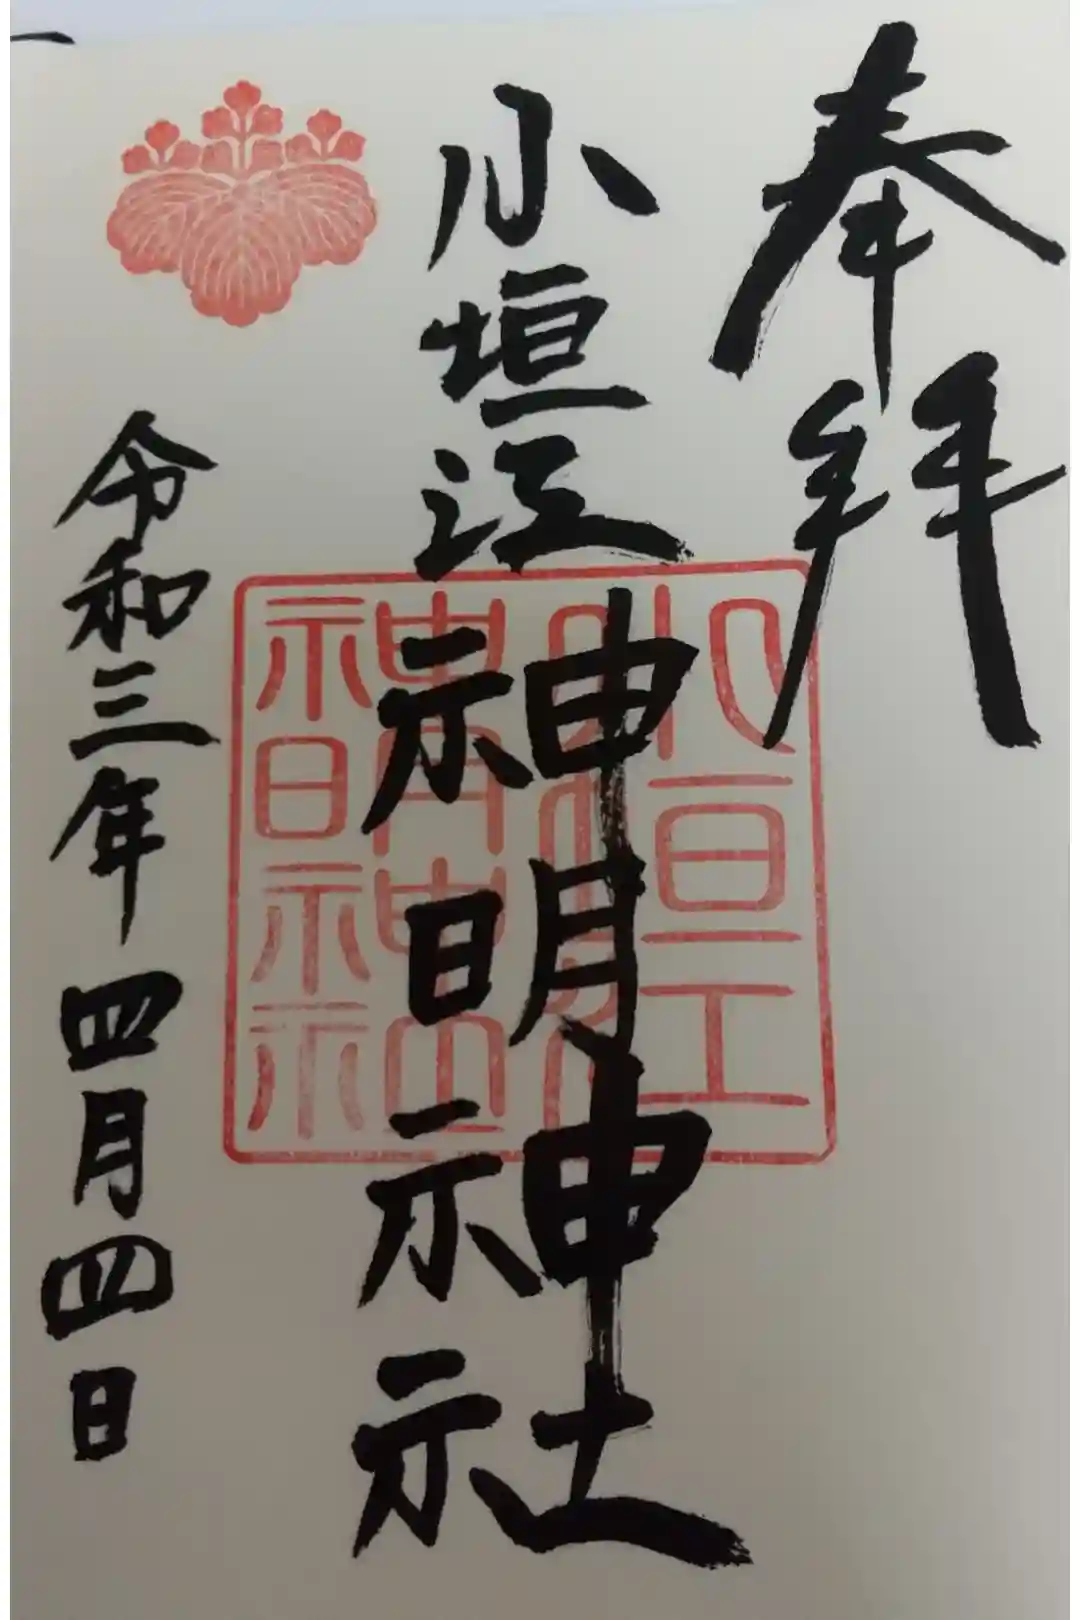 奉拝
小垣江神明神社
小垣江神明神社
令和三年四月四日